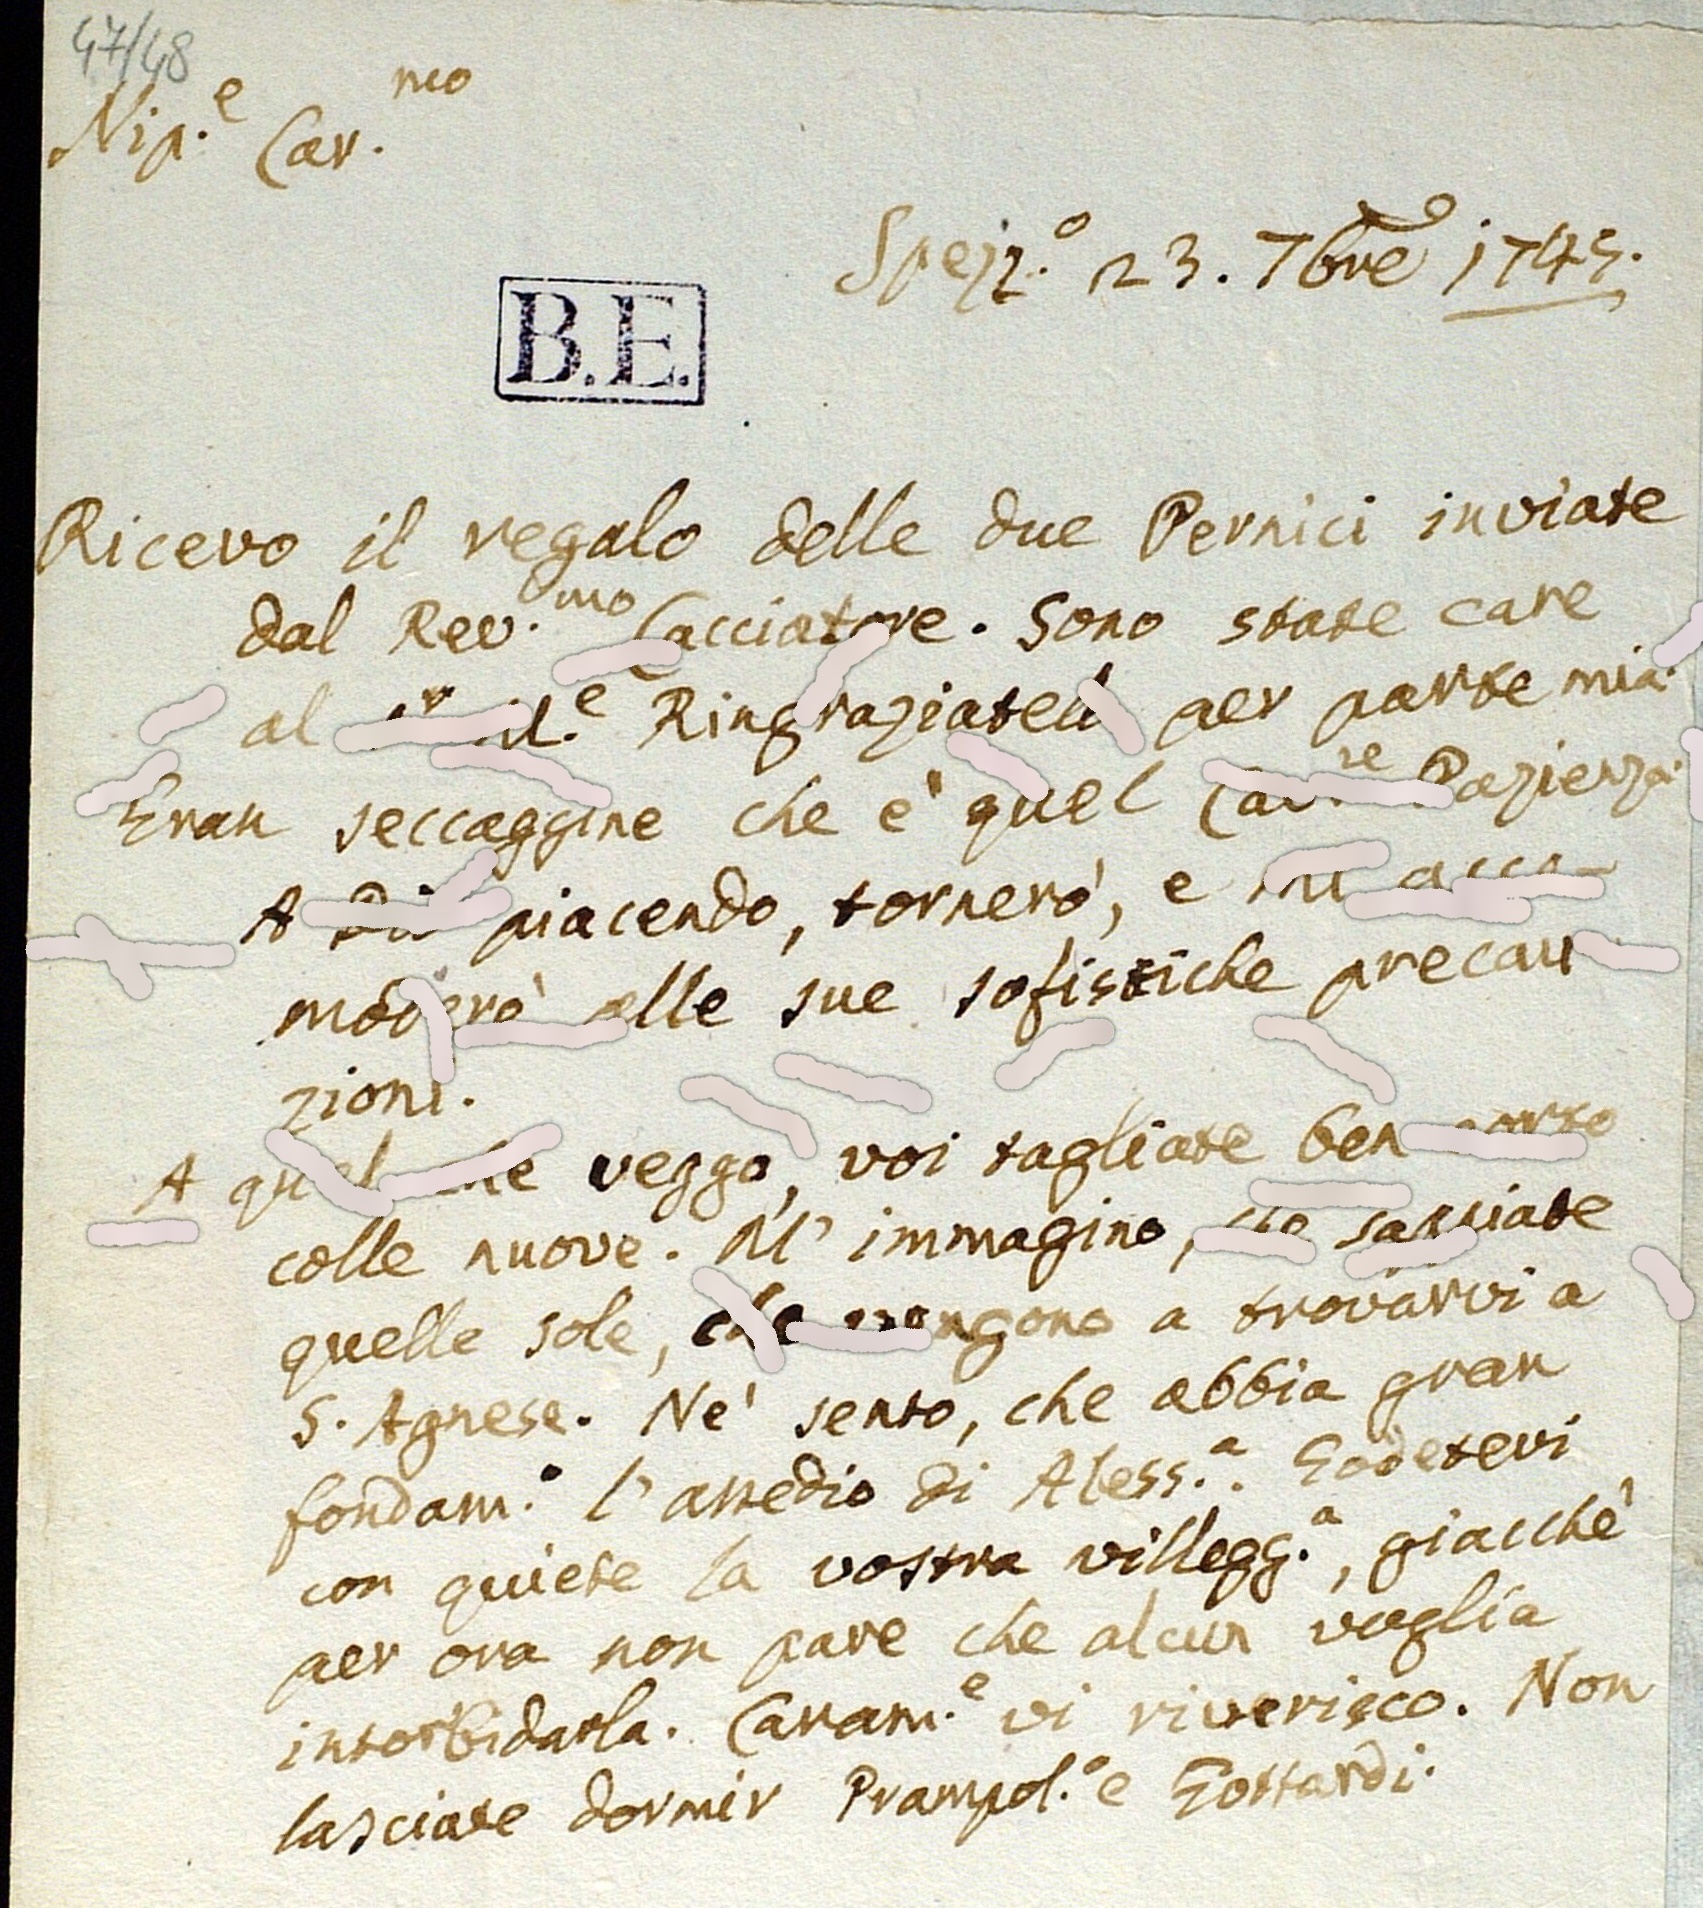 47/48
Nip.e Car.mo
Spezz.o 23. 7bre 1745.
B.E.
Ricevo il regalo delle due Pernici inviate
dal Rev.mo Cacciatore. Sono state care
al Ringraziatelo per parte mia.
Gran seccaggine che è quel Pazienza.
A Dio piacendo, tornerò, e mi acco-
moderò alle sue sofistiche precau
zioni.
A quel che veggo, voi tagliate ben corto
colle nuove. M' immagino, che sappiate
quelle sole, che vengono a trovarvi a
S. Agnese. Ne' sento, che abbia gran
fondam.o l' assedio di Aless.a. Godetevi
con quiete la vostra villegg.a, giacchè
per ora non pare che alcun voglia
intorbidarla. Caram.e vi riverisco. Non
lasciate dormir Prampol.o e Gottardi.